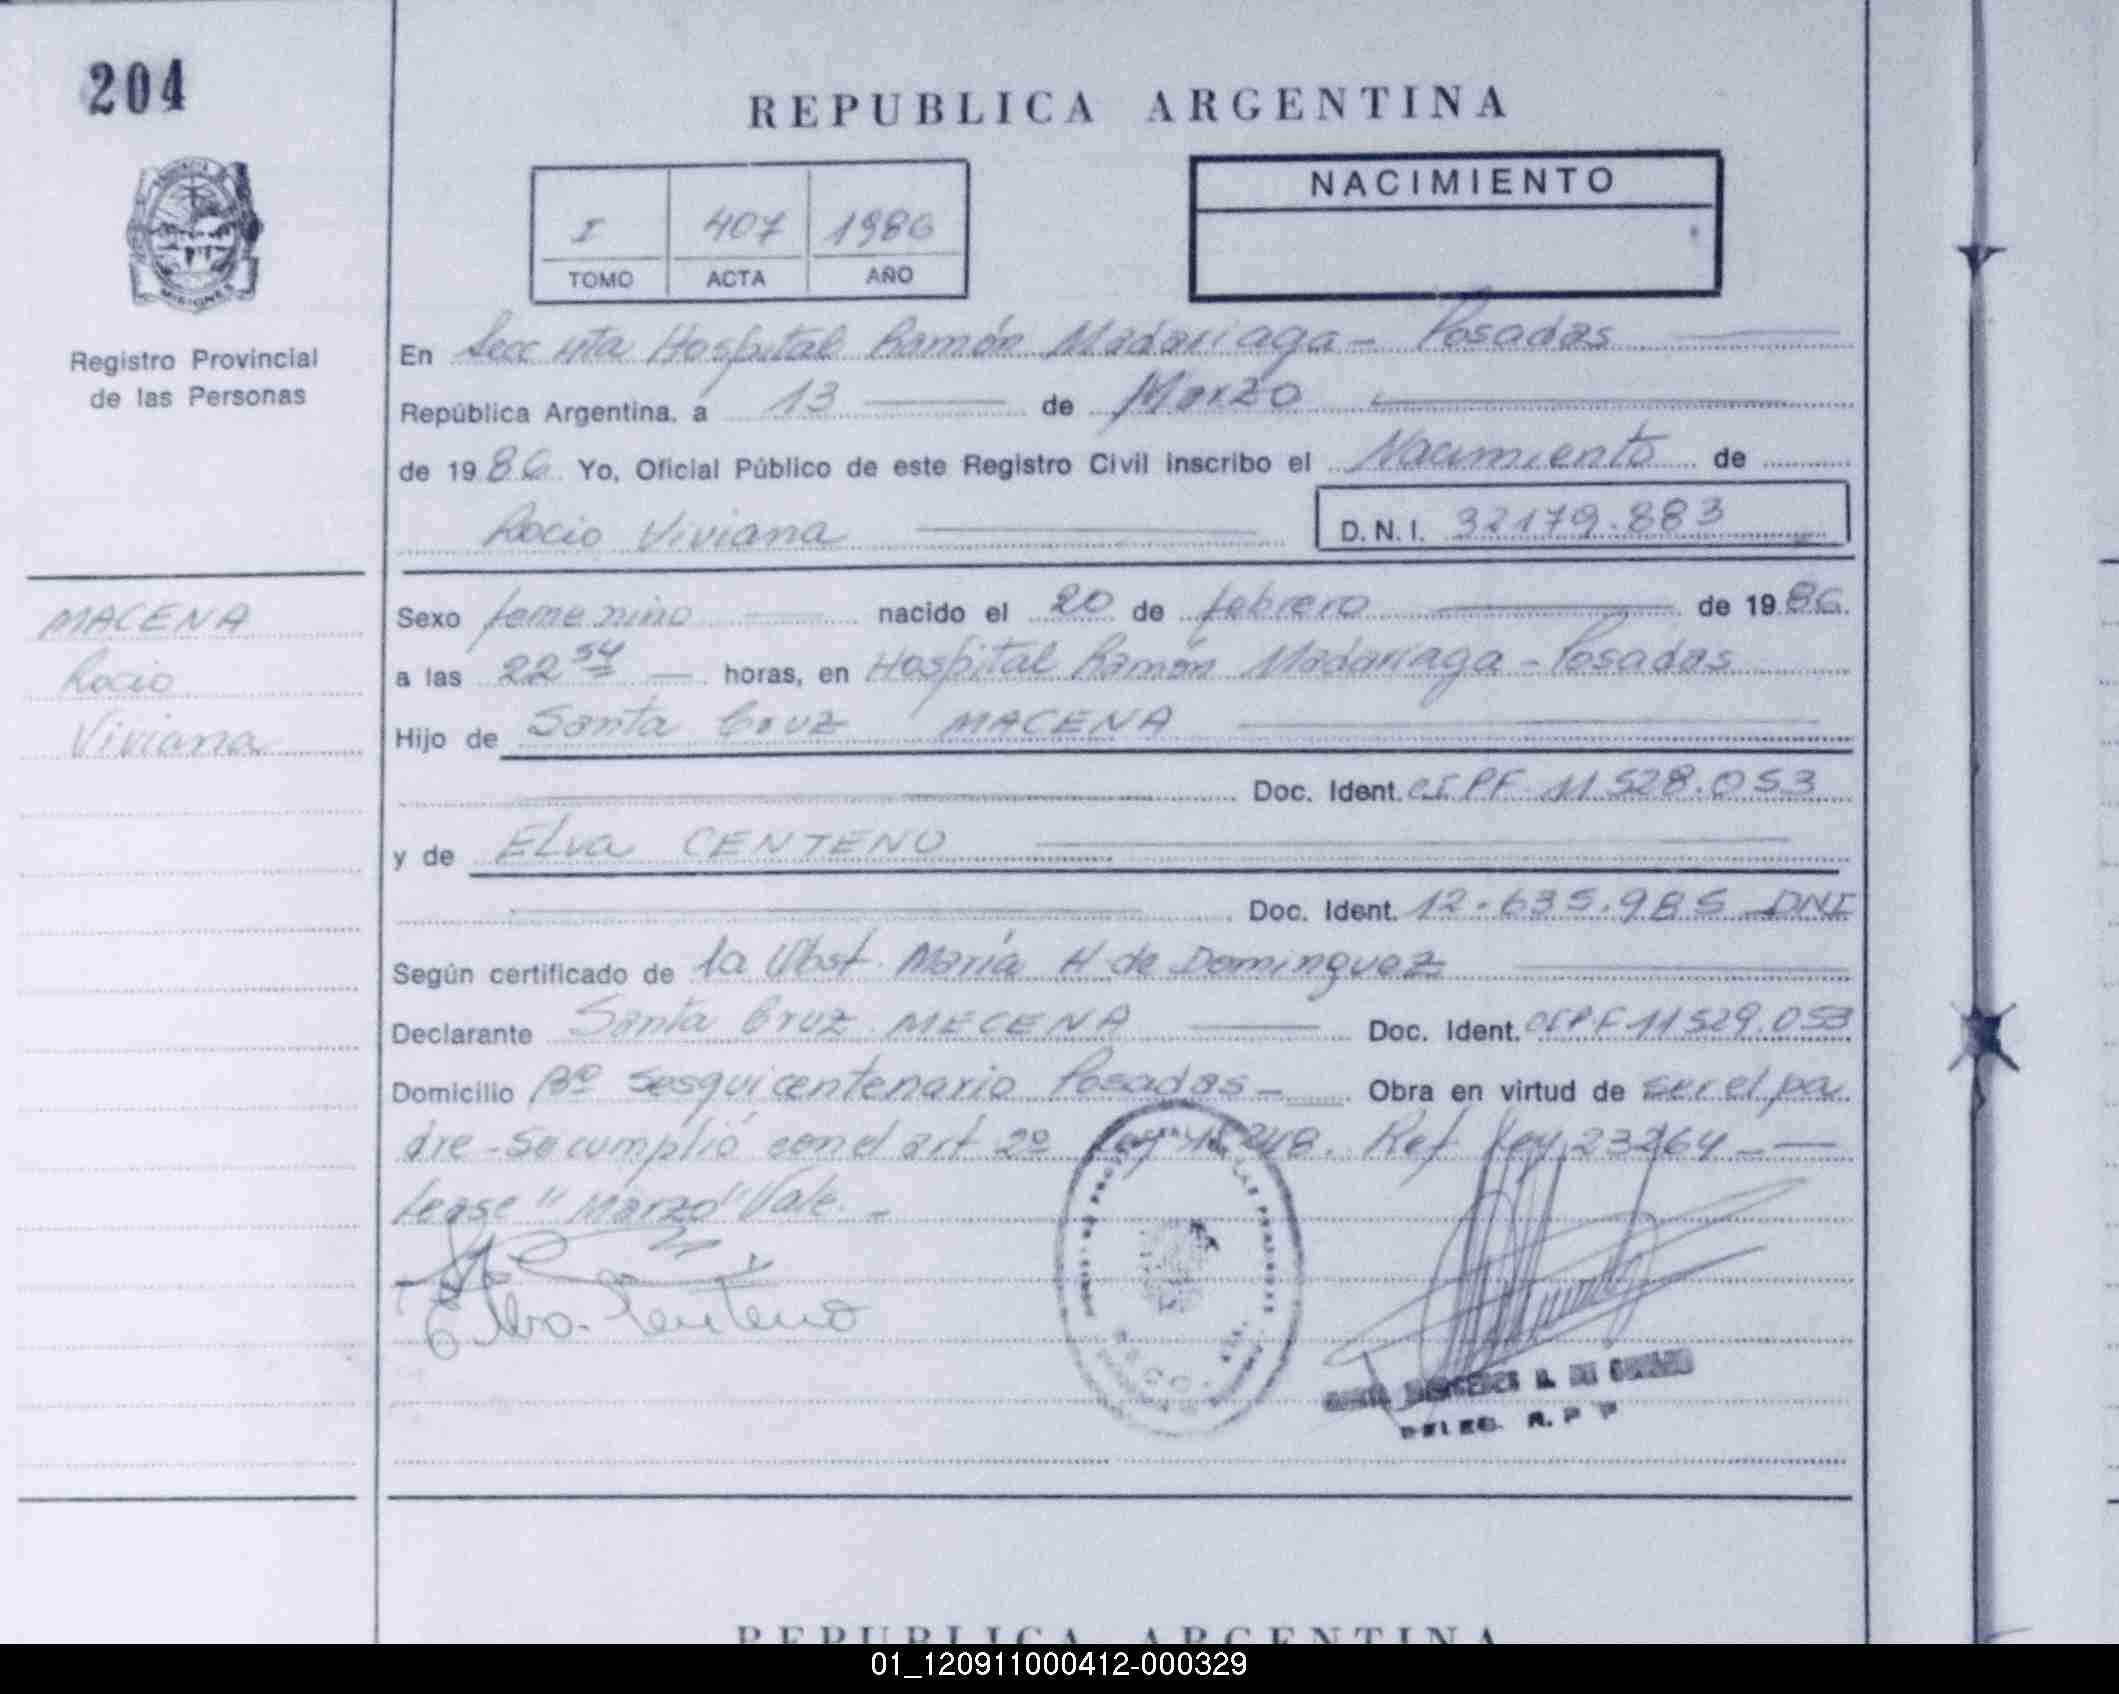 204
REPUBLICA ARGENTINA
MISIONES
Registro Provincial
de las Personas
I 407 1986
TOMO ACTA AÑO
NACIMIENTO
En Secc Hospital Ramón Madariaga - Posadas
República Argentina, a 13 de Marzo
de 1986 Yo, Oficial Público de este Registro Civil inscribo el Nacimiento de
Rocio Viviana D.N.I. 32179.883
MACENA
Rocio
Viviana
Sexo femenino nacido el 20 de febrero de 1986.
a las 22 54 horas, en Hospital Ramón Madariaga - Posadas
Hijo de Santa Cruz MACENA
Doc. Ident. CIPF 11528.053
y de ELva CENTENO
Doc. Ident. 12.635.985 DNI
Según certificado de la Obst. María H de Dominguez
Declarante Santa Cruz MECENA Doc. Ident. CIPF 11529.053
Domicilio Bº Sesquicentenario Posadas - Obra en virtud de ser el pa
dre - Se cumplió con el art 2º Ley 18248. Ref Ley 23264 -
Lease "Marzo" Vale. -
Elva Centeno
DELEG. R. P P
REPUBLICA ARGENTINA
01_120911000412-000329